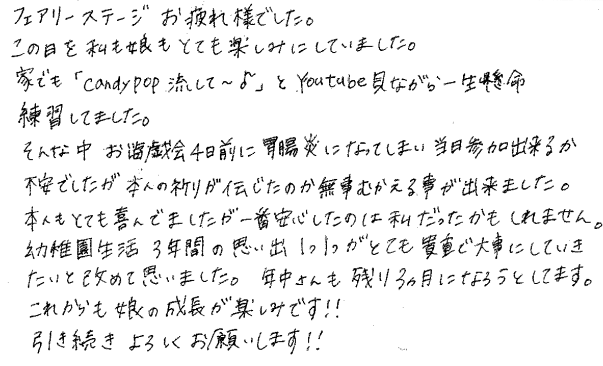 フェアリーステージ お疲れ様でした。
この日を私も娘もとても楽しみにしていました。
家でも「candypop 流して～♪」と Youtube見ながら一生懸命
練習してました。
そんな中 お遊戯会4日前に胃腸炎になってしまい 当日参加出来るか
不安でしたが 本人の祈りが伝じたのか無事むかえる事が出来ました。
本人もとても喜んでましたが一番安心したのは私だったかもしれません。
幼稚園生活 3年間の思い出 1つ1つがとても貴重で大事にしていき
たいと改めて思いました。 年中さんも残り3ヵ月になろうとしてます。
これからも娘の成長が楽しみです!!
引き続きよろしくお願いします!!